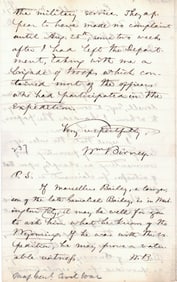 the military service. They ap-
pear to have made no complaint
until Aug. 25, some two weeks
after I had left the Depart-
ment, taking with me a
brigade of troops, which con-
tained most of the officers
who had participated in the
Expedition.
Very respectfully,
Wm Birney
P.S.
If Marcellus Bailey, a lawyer,
son of the late Gamaliel Bailey, is in Wash-
ington City, it may be well for you
to ask him what he knows of the
Wyoming. If he was with the ex-
pedition, he may prove a valu-
able witness. W.B.